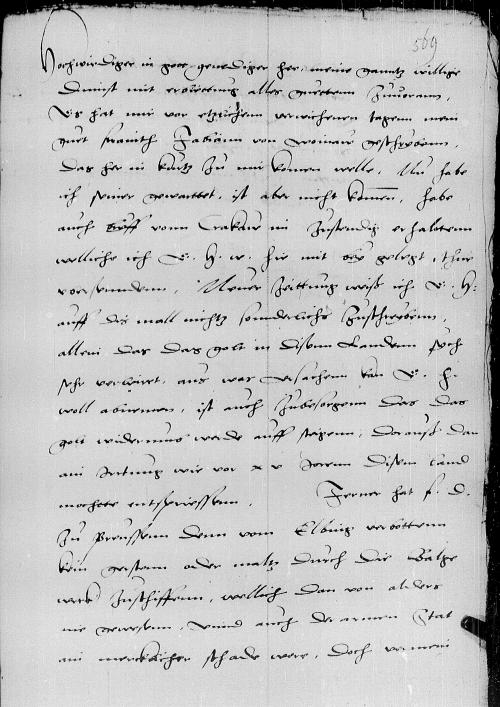 569
Hochwirdiger in gott genediger her, meine gantz willige
dinst mit erbittung alles guettenn zuuorann,
Es hat mir vor etzlichenn verwichenen tagenn mein
guet freundt Fabiann von geschribenn,
das her in kurtz zu mir komen welle, Nu habe
ich seiner gewarttet, ist aber nicht komen, habe
auch brieff vonn Crakaw mir zustendig erhaltenn
welliche ich E. h. w. hie mit
vorsendenn, Newer zeittung weiß ich E. h.
auff dis mall nichtz sonderlichs zuschreibenn,
allein das das golt in disenn Landenn sich
sehr vorlieret, aus was ursachenn kan E. h.
woll abnemen, ist auch zubesorgenn das das
golt widerumb werde auff steigenn, Dorauß dan
ain Irrtung wie vor x v Jorenn disem land
mochte entspriessenn, Ferner hat f. d.
zu preussenn denn vom Elbing verbottenn
kein gerstenn oder maltz durch die Balge
weck zuschiffenn, wellich dan von alders
nie gewesenn, vnnd auch der armen Stat
ain mercklicher schade were, doch vermein